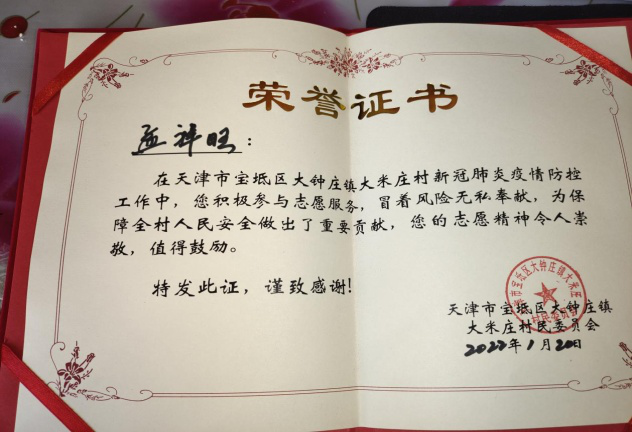 荣誉证书
孟祥旺：
在天津市宝坻区大钟庄镇大米庄村新冠肺炎疫情防控
工作中，您积极参与志愿服务，冒着风险无私奉献，为保
障全村人民安全做出了重要贡献，您的志愿精神令人崇
敬，值得鼓励。
特发此证，谨致感谢!
天津市宝坻区大钟庄镇
大米庄村民委员会
2022年1月20日